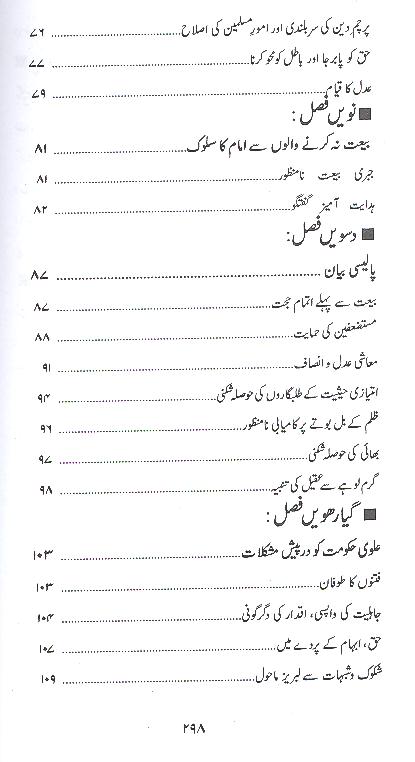 پرچم دین کی سربلندی اور امورِ مسلمین کی اصلاح ........ ۷۶
حق کو پابرجا اور باطل کو محو کرنا ........ ۷۷
عدل کا قیام ........ ۷۹
■ نویں فصل :
بیعت نہ کرنے والوں سے امام کا سلوک ........ ۸۱
جبری بیعت نامنظور ........ ۸۱
ہدایت آمیز گفتگو ........ ۸۲
■ دسویں فصل :
پالیسی بیان ........ ۸۷
بیعت سے پہلے اتمام حجت ........ ۸۷
مستضعفین کی حمایت ........ ۸۸
معاشی عدل و انصاف ........ ۹۱
امتیازی حیثیت کے طلبگاروں کی حوصلہ شکنی ........ ۹۴
ظلم کے بل بوتے پر کامیابی نامنظور ........ ۹۶
بھائی کی حوصلہ شکنی ........ ۹۷
گرم لوہے سے عقیل کی تنبیہ ........ ۹۸
■ گیارھویں فصل :
علوی حکومت کو درپیش مشکلات ........ ۱۰۳
فتنوں کا طوفان ........ ۱۰۳
جاہلیت کی واپسی، اقدار کی دگرگونی ........ ۱۰۴
حق، ابہام کے پردے میں ........ ۱۰۷
شکوک و شبہات سے لبریز ماحول ........ ۱۰۹
۲۹۸